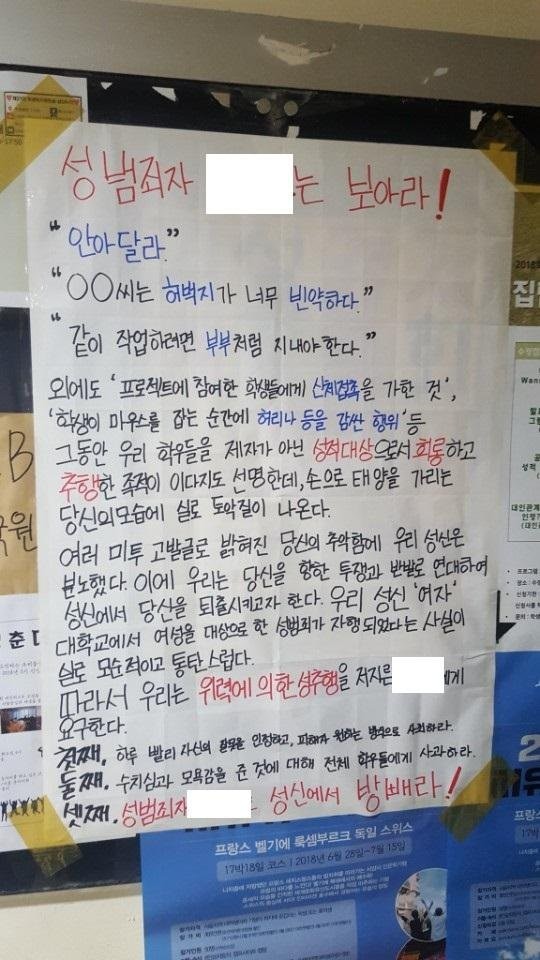 성범죄자 는 보아라!
"안아달라."
"○○씨는 허벅지가 너무 빈약하다."
"같이 작업하려면 부부처럼 지내야한다."
외에도 '프로젝트에 참여한 학생들에게 신체접촉을 가한 것',
'학생이 마우스를 잡는 순간에 허리나 등을 감싼 행위' 등
그동안 우리 학우들을 제자가 아닌 성적대상으로서 희롱하고
추행한 족적이 이다지도 선명한데, 손으로 태양을 가리는
당신의모습에 실로 토악질이 나온다.
여러 미투 고발글로 밝혀진 당신의 추악함에 우리 성신은
분노했다. 이에 우리는 당신을 향한 투쟁과 반발로 연대하여
성신에서 당신을 퇴출시키고자 한다. 우리 성신 '여자'
대학교에서 여성을 대상으로 한 성범죄가 자행 되었다는 사실이
실로 모순적이고 통탄스럽다.
따라서 우리는 위력에 의한 성추행을 저지른 에게
요구한다.
첫째. 하루 빨리 자신의 잘못을 인정하고, 피해자가 원하는 방식으로 사죄하라.
둘째. 수치심과 모욕감을 준 것에 대해 전체 학우들에게 사과하라.
셋째. 성범죄자 는 성신에서 방빼라!
프랑스 벨기에 룩셈부르크 독일 스위스
17박18일 코스 | 2018년 6월 28일~7월 15일
2018
집
대인관계
국원
춘 대